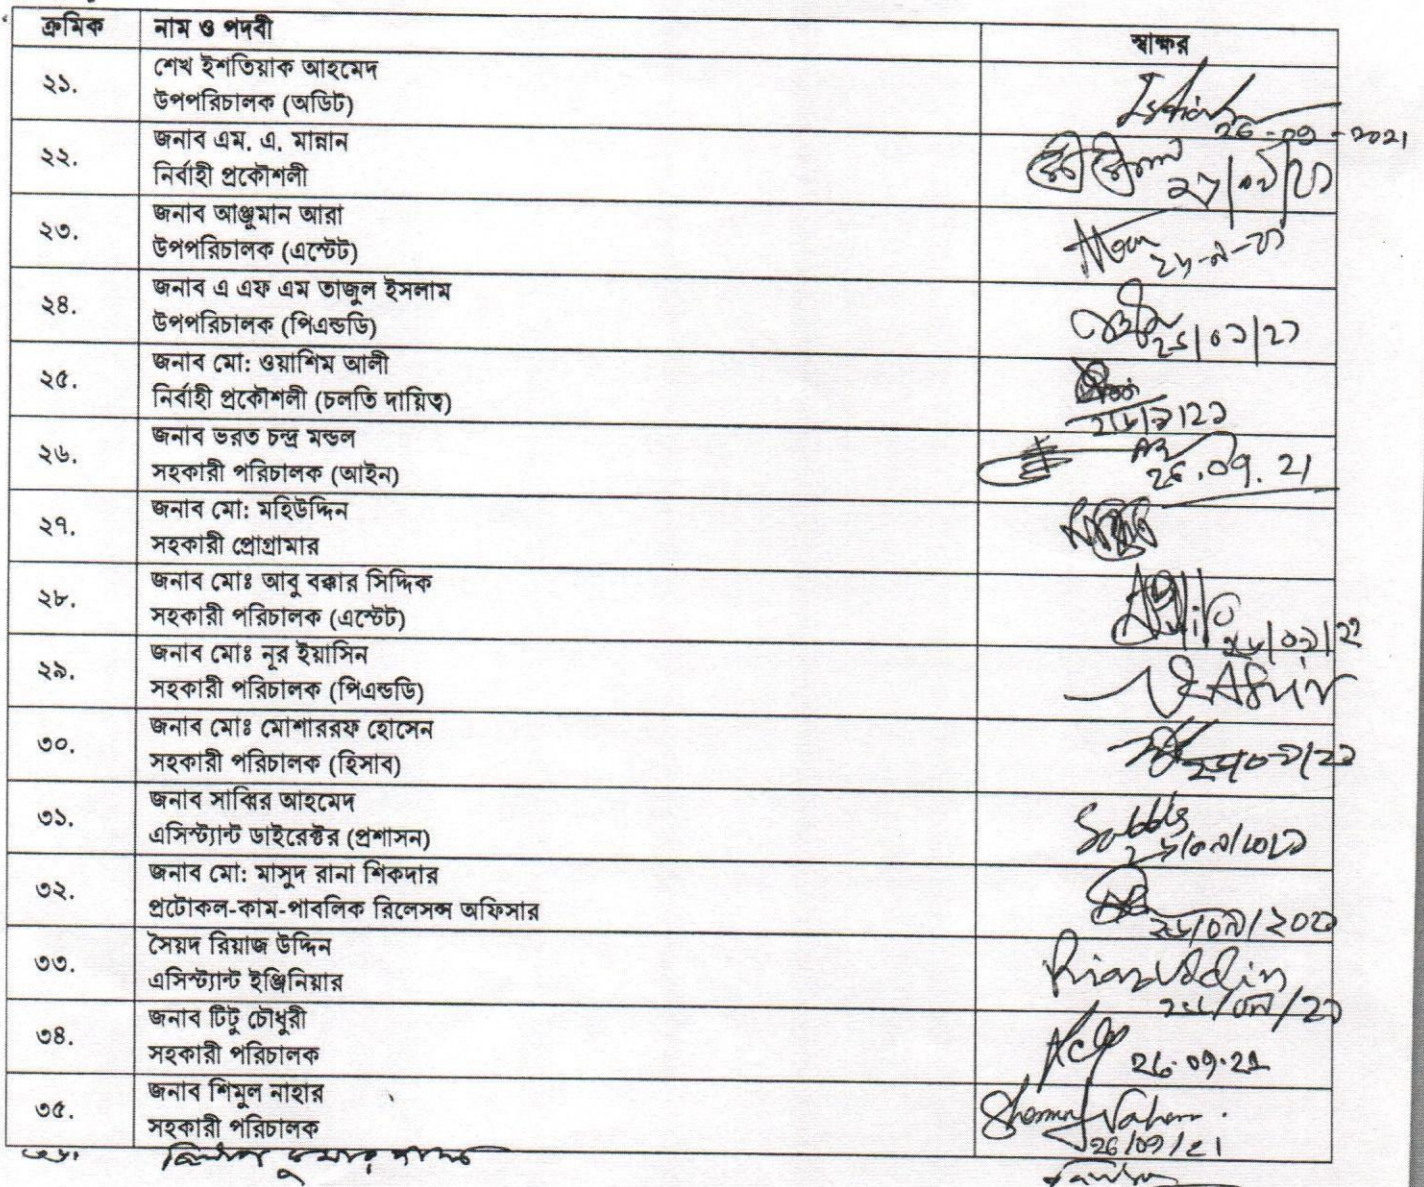 ক্রমিক নাম ও পদবী স্বাক্ষর
২১. শেখ ইশতিয়াক আহমেদ
উপপরিচালক (অডিট)
26-09-2021
২২. জনাব এম. এ. মান্নান
নির্বাহী প্রকৌশলী
২৬/০৯/২১
২৩. জনাব আঞ্জুমান আরা
উপপরিচালক (এস্টেট)
২৬-৯-২১
২৪. জনাব এ এফ এম তাজুল ইসলাম
উপপরিচালক (পিএন্ডডি)
২৬/০৯/২১
২৫. জনাব মো: ওয়াশিম আলী
নির্বাহী প্রকৌশলী (চলতি দায়িত্ব)
২৬/৯/২১
২৬. জনাব ভরত চন্দ্র মন্ডল
সহকারী পরিচালক (আইন)
26.09.21
২৭. জনাব মো: মহিউদ্দিন
সহকারী প্রোগ্রামার
২৮. জনাব মোঃ আবু বক্কার সিদ্দিক
সহকারী পরিচালক (এস্টেট)
২৬/০৯/২১
২৯. জনাব মোঃ নূর ইয়াসিন
সহকারী পরিচালক (পিএন্ডডি)
৩০. জনাব মোঃ মোশাররফ হোসেন
সহকারী পরিচালক (হিসাব)
৩১. জনাব সাব্বির আহমেদ
এসিস্ট্যান্ট ডাইরেক্টর (প্রশাসন)
২৬/০৯/২০২১
৩২. জনাব মো: মাসুদ রানা শিকদার
প্রটোকল-কাম-পাবলিক রিলেসন্স অফিসার
২৬/০৯/২০২১
৩৩. সৈয়দ রিয়াজ উদ্দিন
এসিস্ট্যান্ট ইঞ্জিনিয়ার
Riaz Uddin
২৬/০৯/২১
৩৪. জনাব টিটু চৌধুরী
সহকারী পরিচালক
26.09.21
৩৫. জনাব শিমুল নাহার
সহকারী পরিচালক
26/09/21